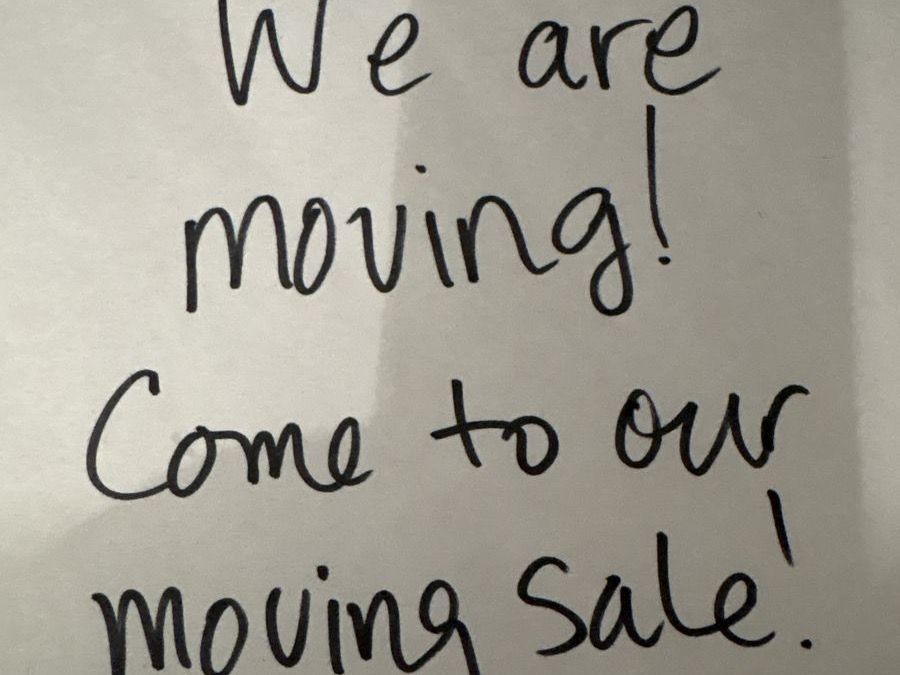 We are
moving!
Come to our
moving sale!